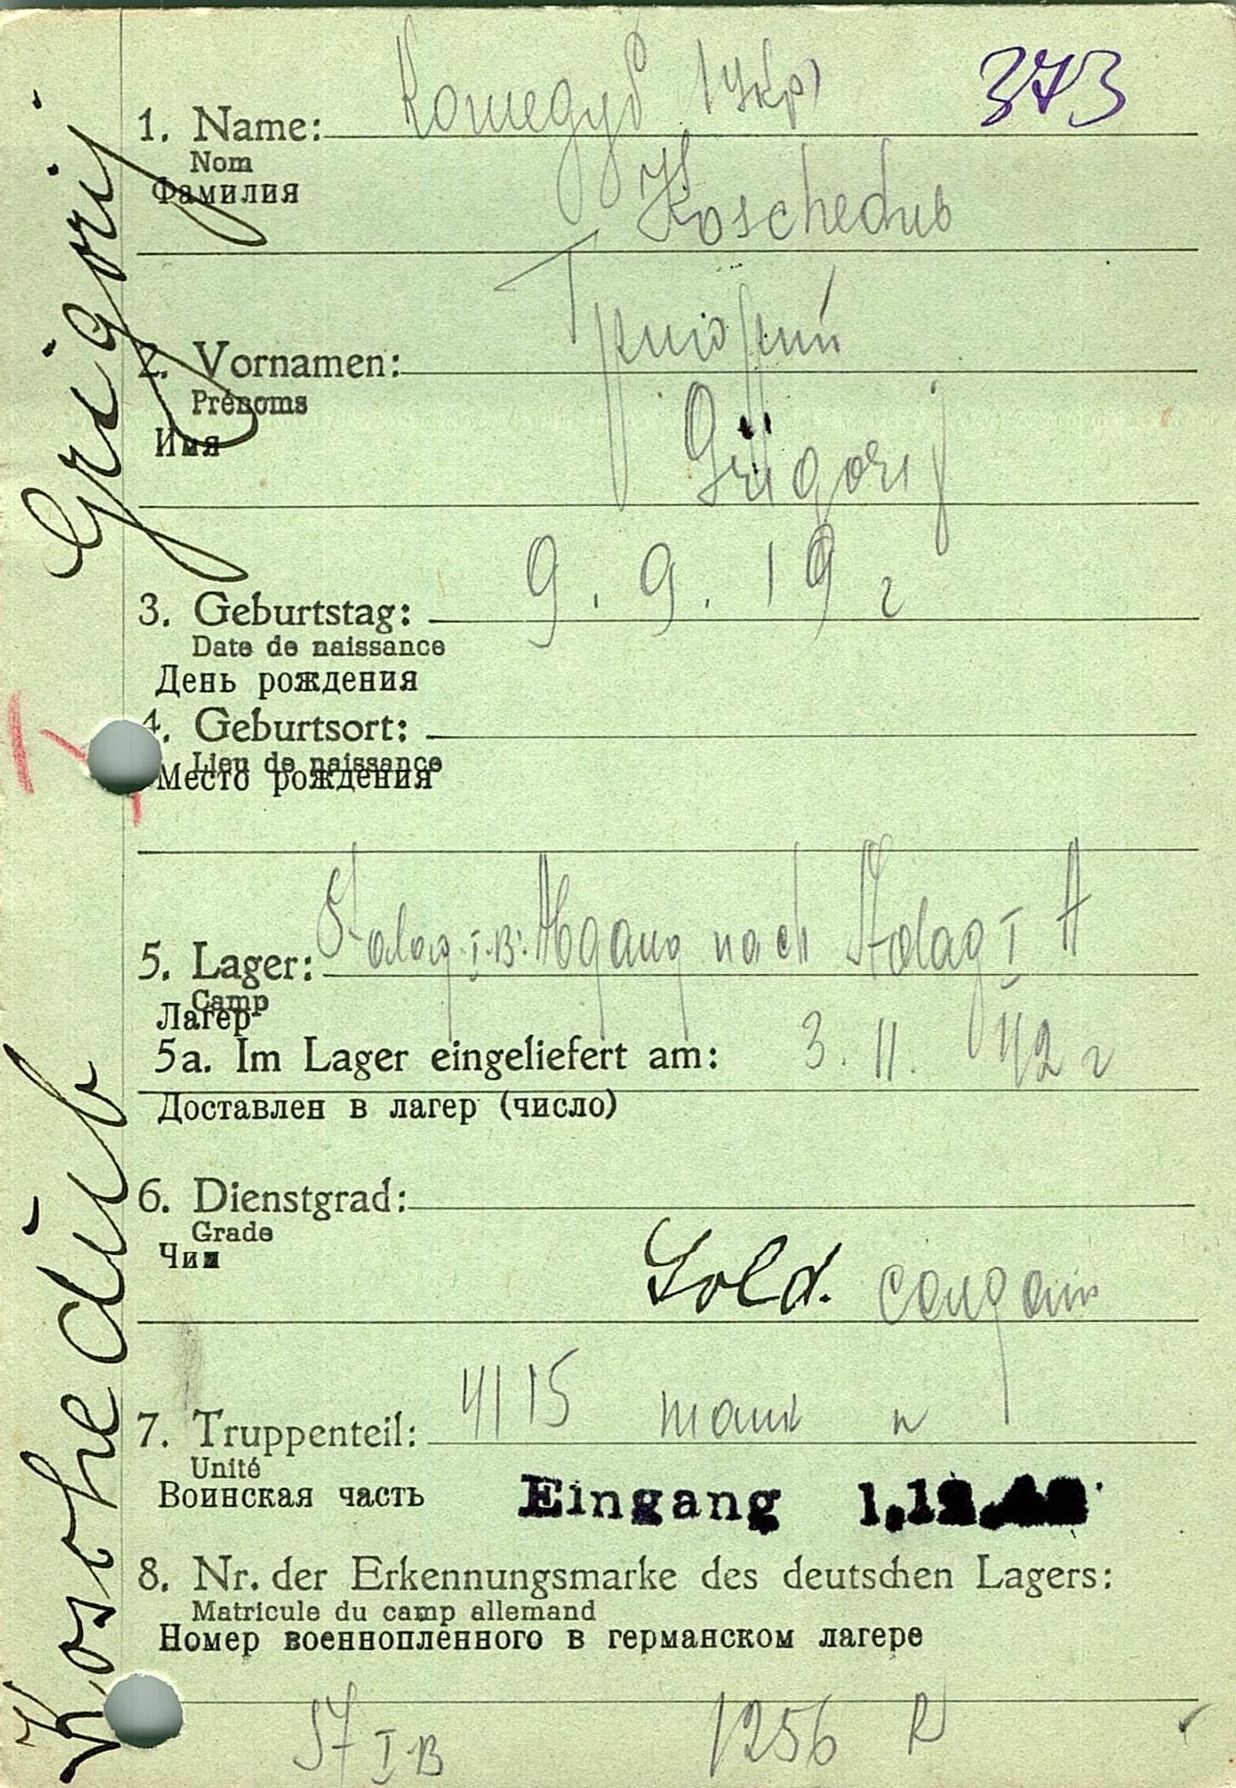 Кошедуб (Укр) 373
1. Name:
Nom
Фамилия
Koschedub
Григорий
2. Vornamen:
Prénoms
Имя
Grigorij
3. Geburtstag: 9. 9. 19 г
Date de naissance
День рождения
4. Geburtsort:
Lieu de naissance
Место рождения
5. Lager: Stalag I.B. Abgang nach Stalag I A
Camp
Лагер
5a. Im Lager eingeliefert am: 3. 11. 42 г
Доставлен в лагер (число)
6. Dienstgrad:
Grade
Чин
Sold. солдат
7. Truppenteil: 4115
Unité
Воинская часть
Eingang 1.12.42
8. Nr. der Erkennungsmarke des deutschen Lagers:
Matricule du camp allemand
Номер военнопленного в германском лагере
St I B 1256
Koschedub Grigorij